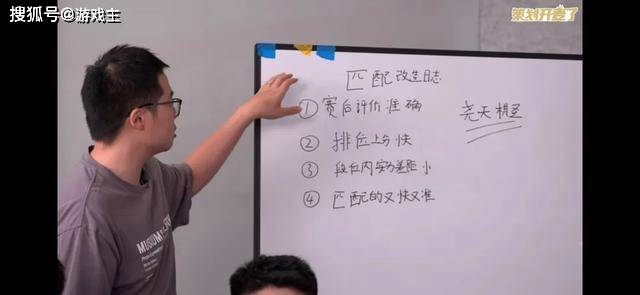 搜狐号@游戏主
策划开麦了
匹配改造日志
①赛后评价准确
②排位上分快
③段位内实力差距小
④匹配的又快又准
尧天概
MUSEUM